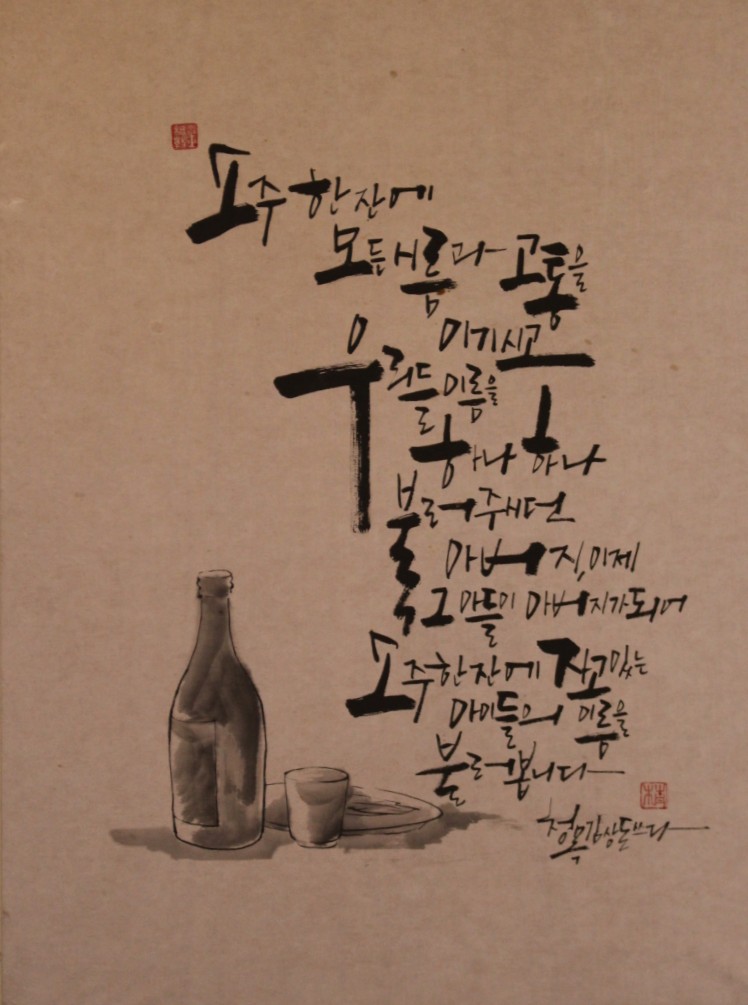 소주 한 잔에
모든 시름과 고통을
이기시고
우리들 이름을
하나 하나
불러 주시던
아버지, 이제
그 아들이 아버지가 되어
소주 한 잔에 자고 있는
아이들의 이름을
불러 봅니다
청목 김상돈 쓰다